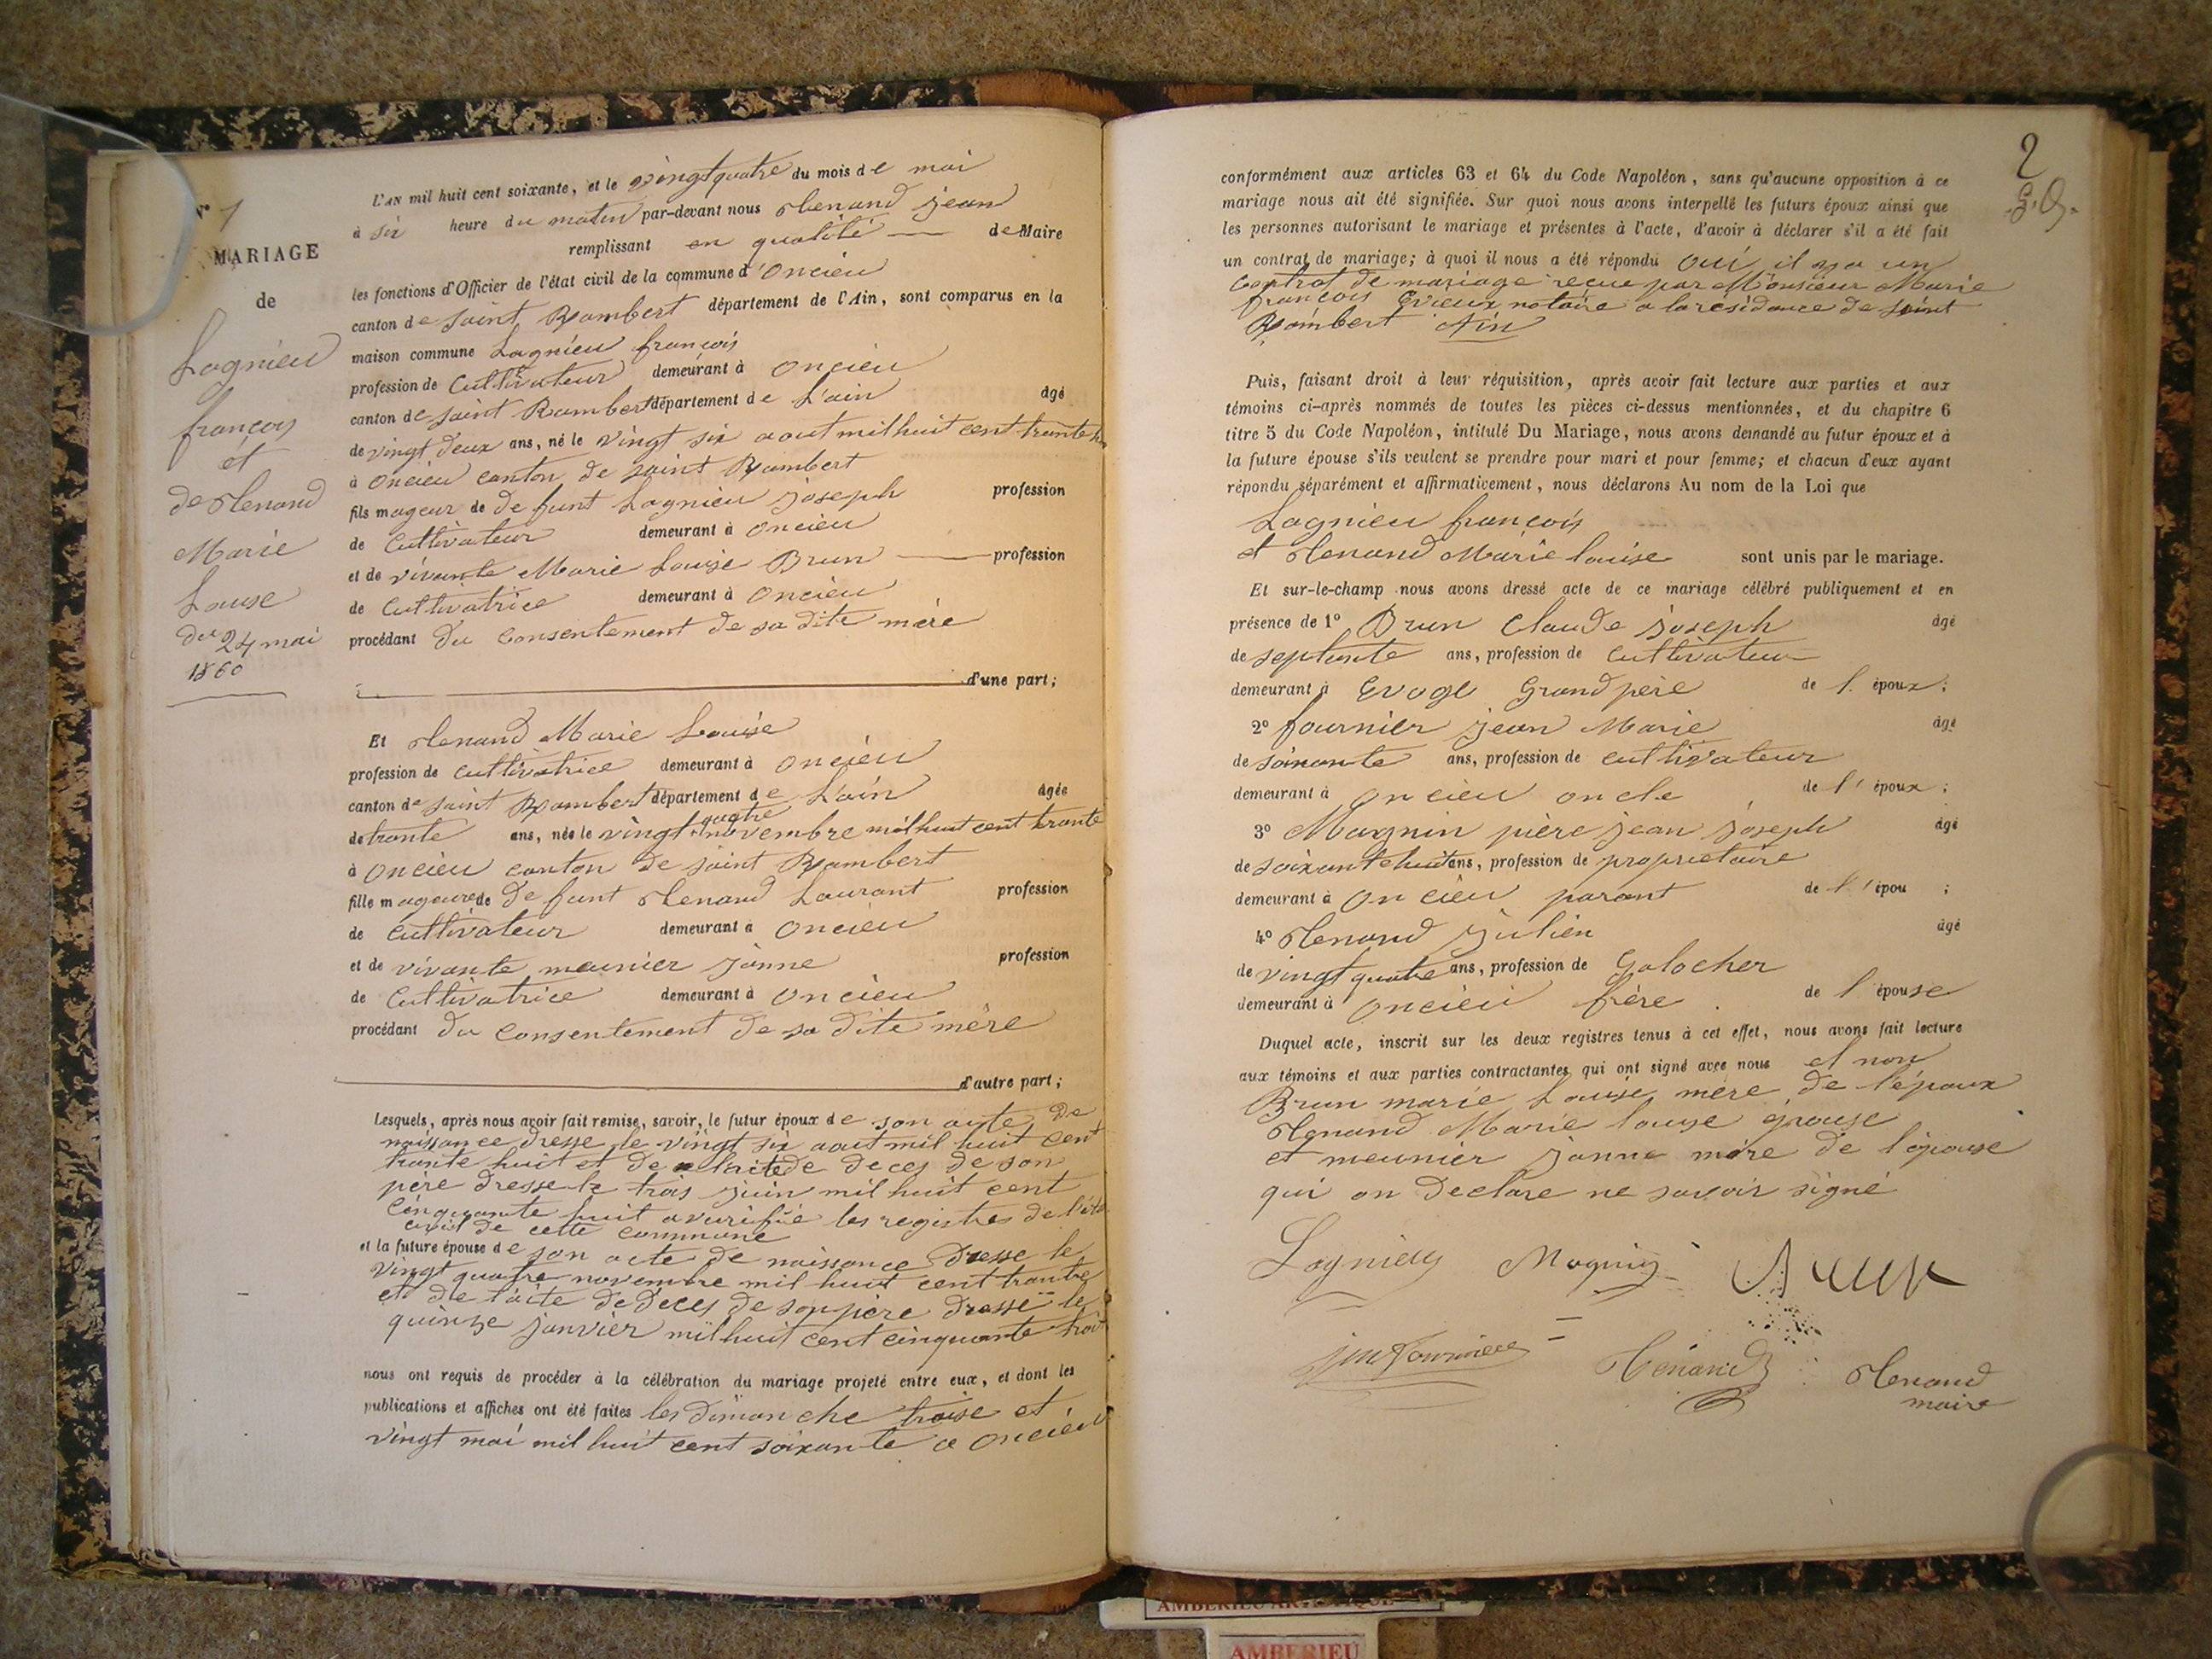 N° 1
MARIAGE
de
Lagnieu
françois
et
de Renand
Marie
Louise
du 24 mai
1860
L'AN mil huit cent soixante, et le vingt quatre du mois de mai
à six heure du matin par-devant nous Renand jean
remplissant en qualité de Maire
les fonctions d'Officier de l'état civil de la commune d'oncieu
canton de saint Rambert département de l'Ain, sont comparus en la
maison commune Lagnieu françois
profession de Cultivateur demeurant à oncieu
canton de saint Rambert département de L'ain âgé
de vingt deux ans, né le vingt six aout mil huit cent trante
à oncieu canton de saint Rambert
fils mageur de defunt Lagnieu joseph profession
de Cultivateur demeurant à oncieu
et de vivante Marie Louise Brun profession
de Cultivatrice demeurant à oncieu
procédant du Consentement de sa dite mère
d'une part;
Et Renand Marie Louise
profession de cultivatrice demeurant à oncieu
canton de saint Rambert département de L'ain âgée
de trante ans, née le vingt quatre novembre mil huit cent trante
à oncieu canton de saint Rambert
fille mageure de defunt Renand Laurant profession
de Cultivateur demeurant à oncieu
et de vivante meunier janne profession
de Cultivatrice demeurant à oncieu
procédant du Consentement de sa dite mère
d'autre part;
Lesquels, après nous avoir fait remise, savoir, le futur époux de son acte de
naissance dresse le vingt six aout mil huit cent
trante huit et de lacte de deces de son
père dresse le trois juin mil huit cent
cinquante huit les registres de l'état
civil de cette commune
et la future épouse de son acte de naissance dresse le
vingt quatre novembre mil huit cent trante
et de l'acte de deces de son père dressé le
quinze janvier mil huit cent cinquante trois
nous ont requis de procéder à la célébration du mariage projeté entre eux, et dont les
publications et affiches ont été faites les dimanche traise et
vingt mai mil huit cent soixante a oncieu
2
conformément aux articles 63 et 64 du Code Napoléon, sans qu'aucune opposition à ce
mariage nous ait été signifiée. Sur quoi nous avons interpellé les futurs époux ainsi que
les personnes autorisant le mariage et présentes à l'acte, d'avoir à déclarer s'il a été fait
un contrat de mariage; à quoi il nous a été répondu oui il ya un
Contrat de mariage reçue par Monsieur Marie
françois notaire a la résidance de saint
Rambert Ain
Puis, faisant droit à leur réquisition, après avoir fait lecture aux parties et aux
témoins ci-après nommés de toutes les pièces ci-dessus mentionnées, et du chapitre 6
titre 5 du Code Napoléon, intitulé Du Mariage, nous avons demandé au futur époux et à
la future épouse s'ils veulent se prendre pour mari et pour femme; et chacun d'eux ayant
répondu séparément et affirmativement, nous déclarons Au nom de la Loi que
Lagnieu françois
et Renand Marie louise sont unis par le mariage.
Et sur-le-champ nous avons dressé acte de ce mariage célébré publiquement et en
présence de 1° Brun Claude joseph âgé
de septante ans, profession de Cultivateur
demeurant à Evoge Grand père de l. époux;
2° fournier jean Marie âgé
de soixante ans, profession de cultivateur
demeurant à oncieu oncle de l'époux;
3° Magnin pière jean joseph âgé
de soixante huit ans, profession de proprietaire
demeurant à oncieu parant de l'épou ;
4° Renand julien âgé
de vingt quatre ans, profession de Galocher
demeurant à oncieu frère de l'épouse
Duquel acte, inscrit sur les deux registres tenus à cet effet, nous avons fait lecture
aux témoins et aux parties contractantes qui ont signé avec nous et non
Brun marie Louise mère de l'époux
Renand Marie louise épouse
et meunier janne mère de l'épouse
qui on declare ne savoir signé
Lagnieu Magnin
jm fournier Renand Renand
maire
AMBERIEU
AMBERIEU